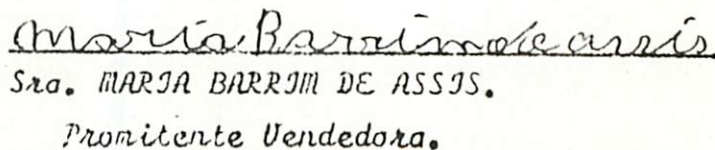 Maria Barrim de assis
Sra. MARIA BARRIM DE ASSIS.
Promitente Vendedora.